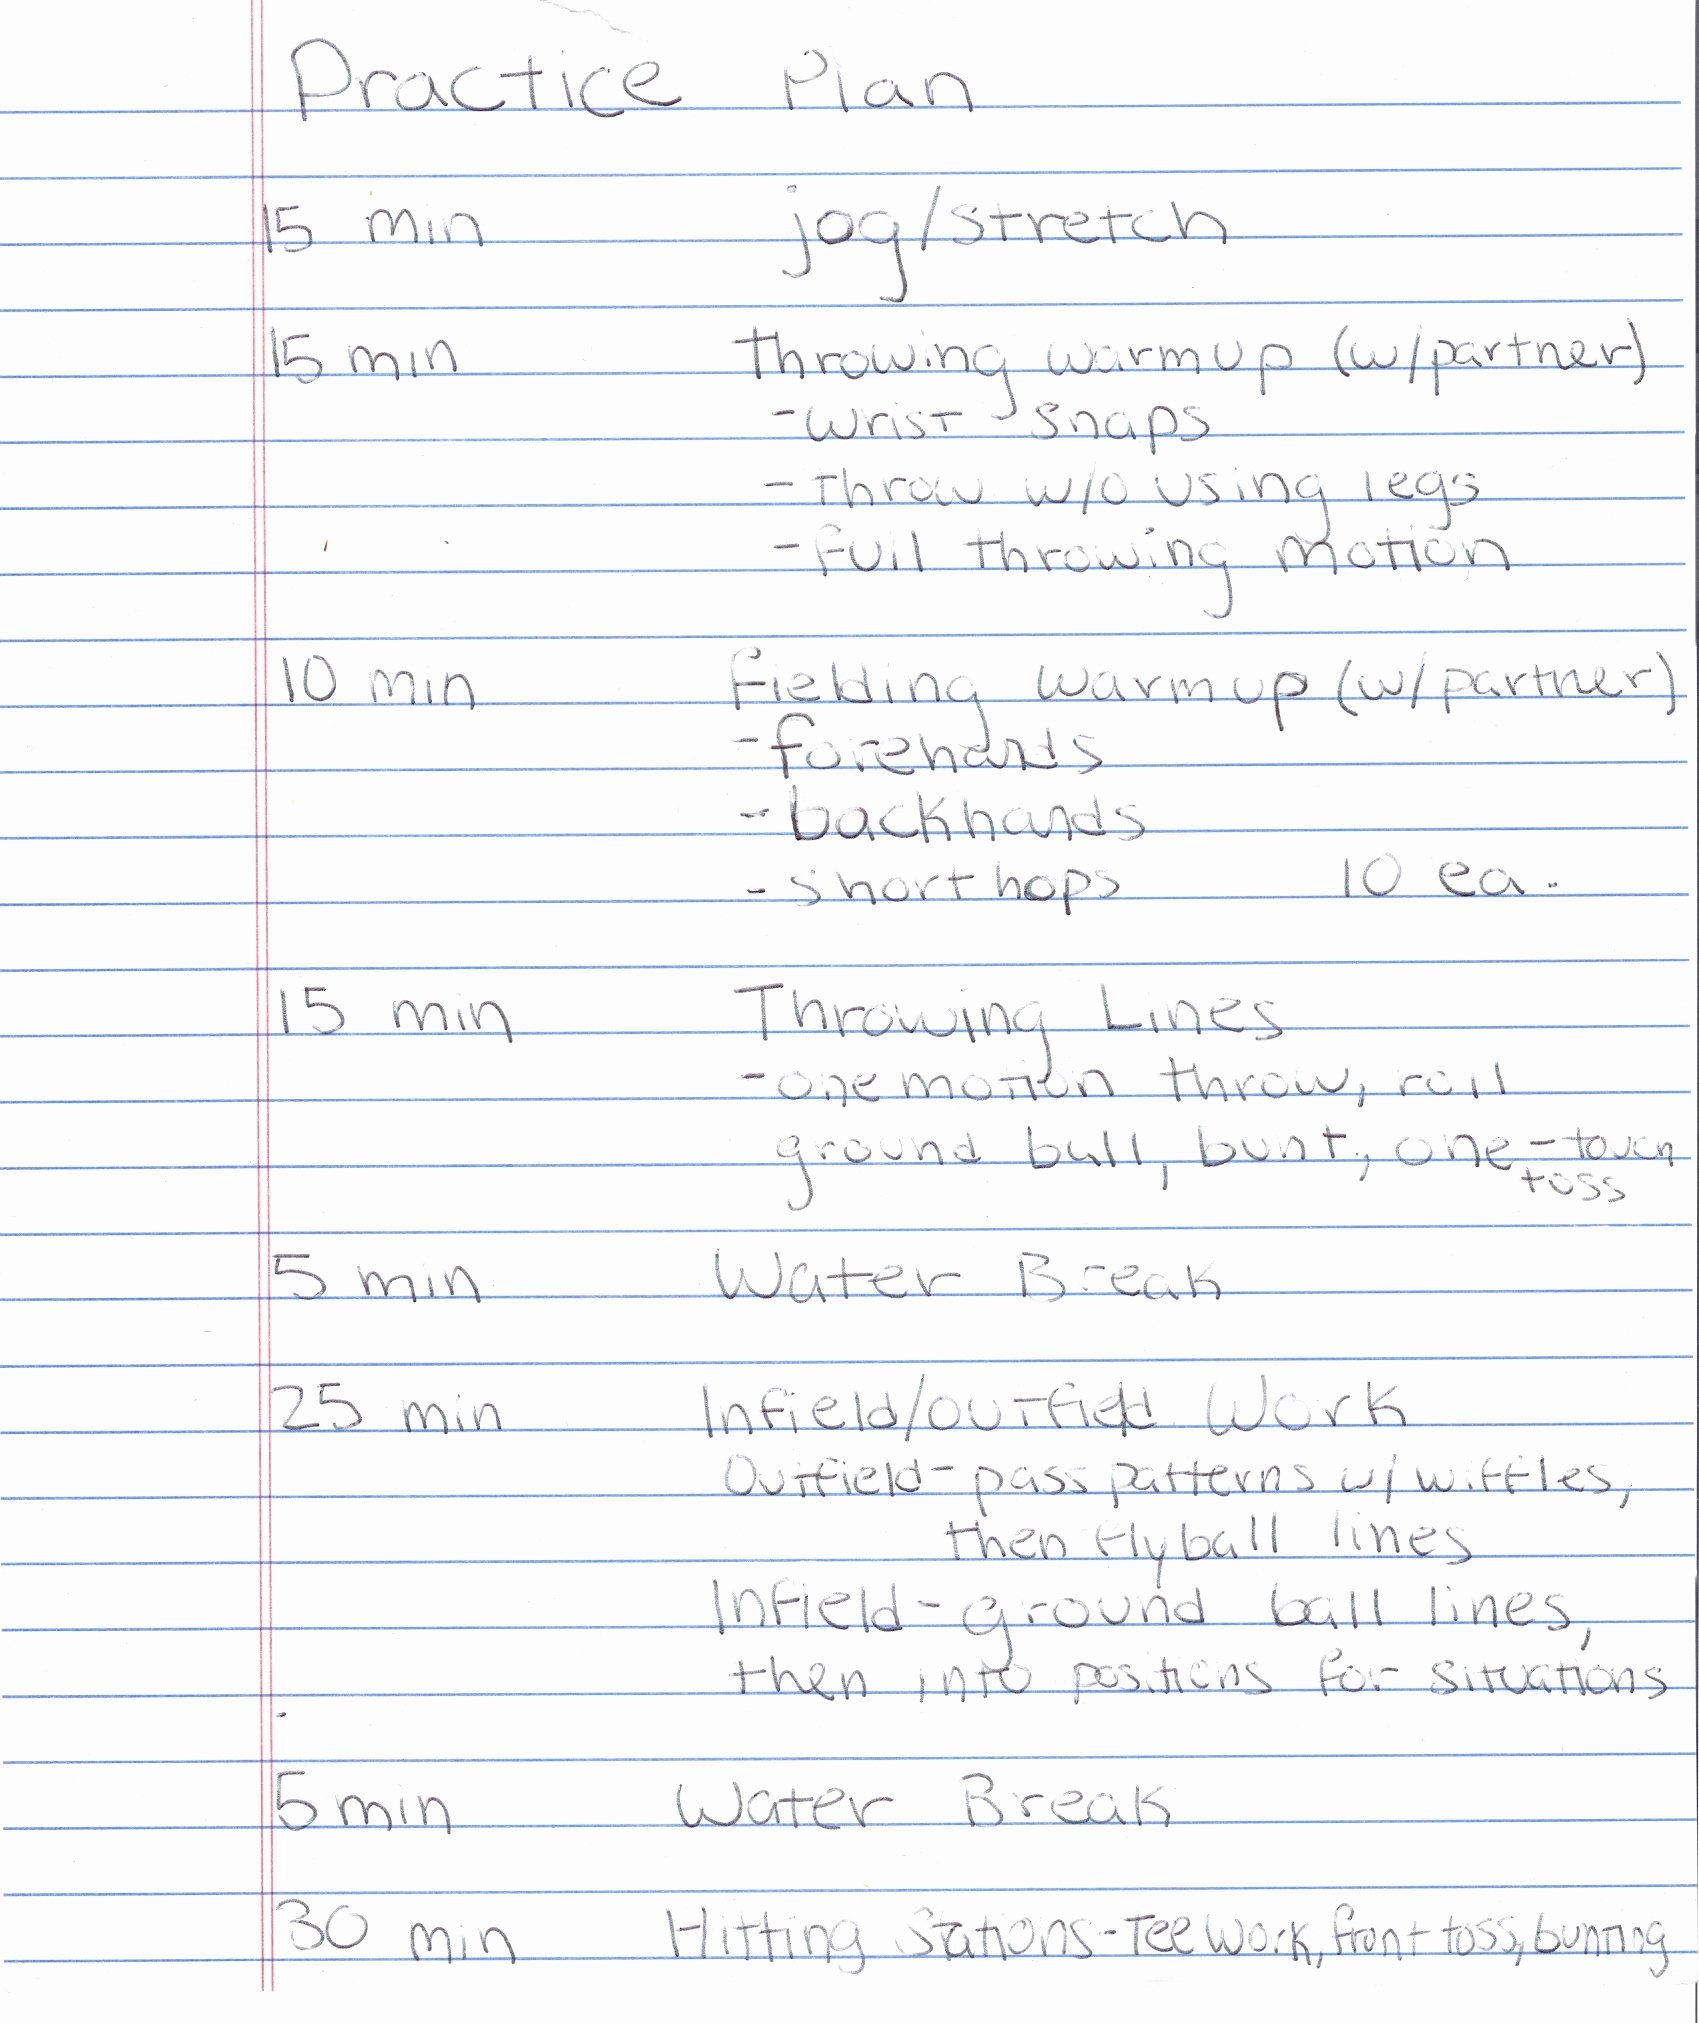 Practice Plan
15 min jog/stretch
15 min Throwing warmup (w/partner)
-wrist snaps
- throw w/o using legs
- full throwing motion
10 min Fielding warmup (w/partner)
- forehands
- backhands
- short hops 10 ea.
15 min Throwing Lines
- one motion throw, roll
ground ball, bunt, one-touch
toss
5 min Water Break
25 min Infield/outfield Work
Outfield- pass patterns w/ wiffles,
then flyball lines
Infield- ground ball lines,
then into positions for situations
5 min Water Break
30 min Hitting Stations-Tee Work, front toss, bunting